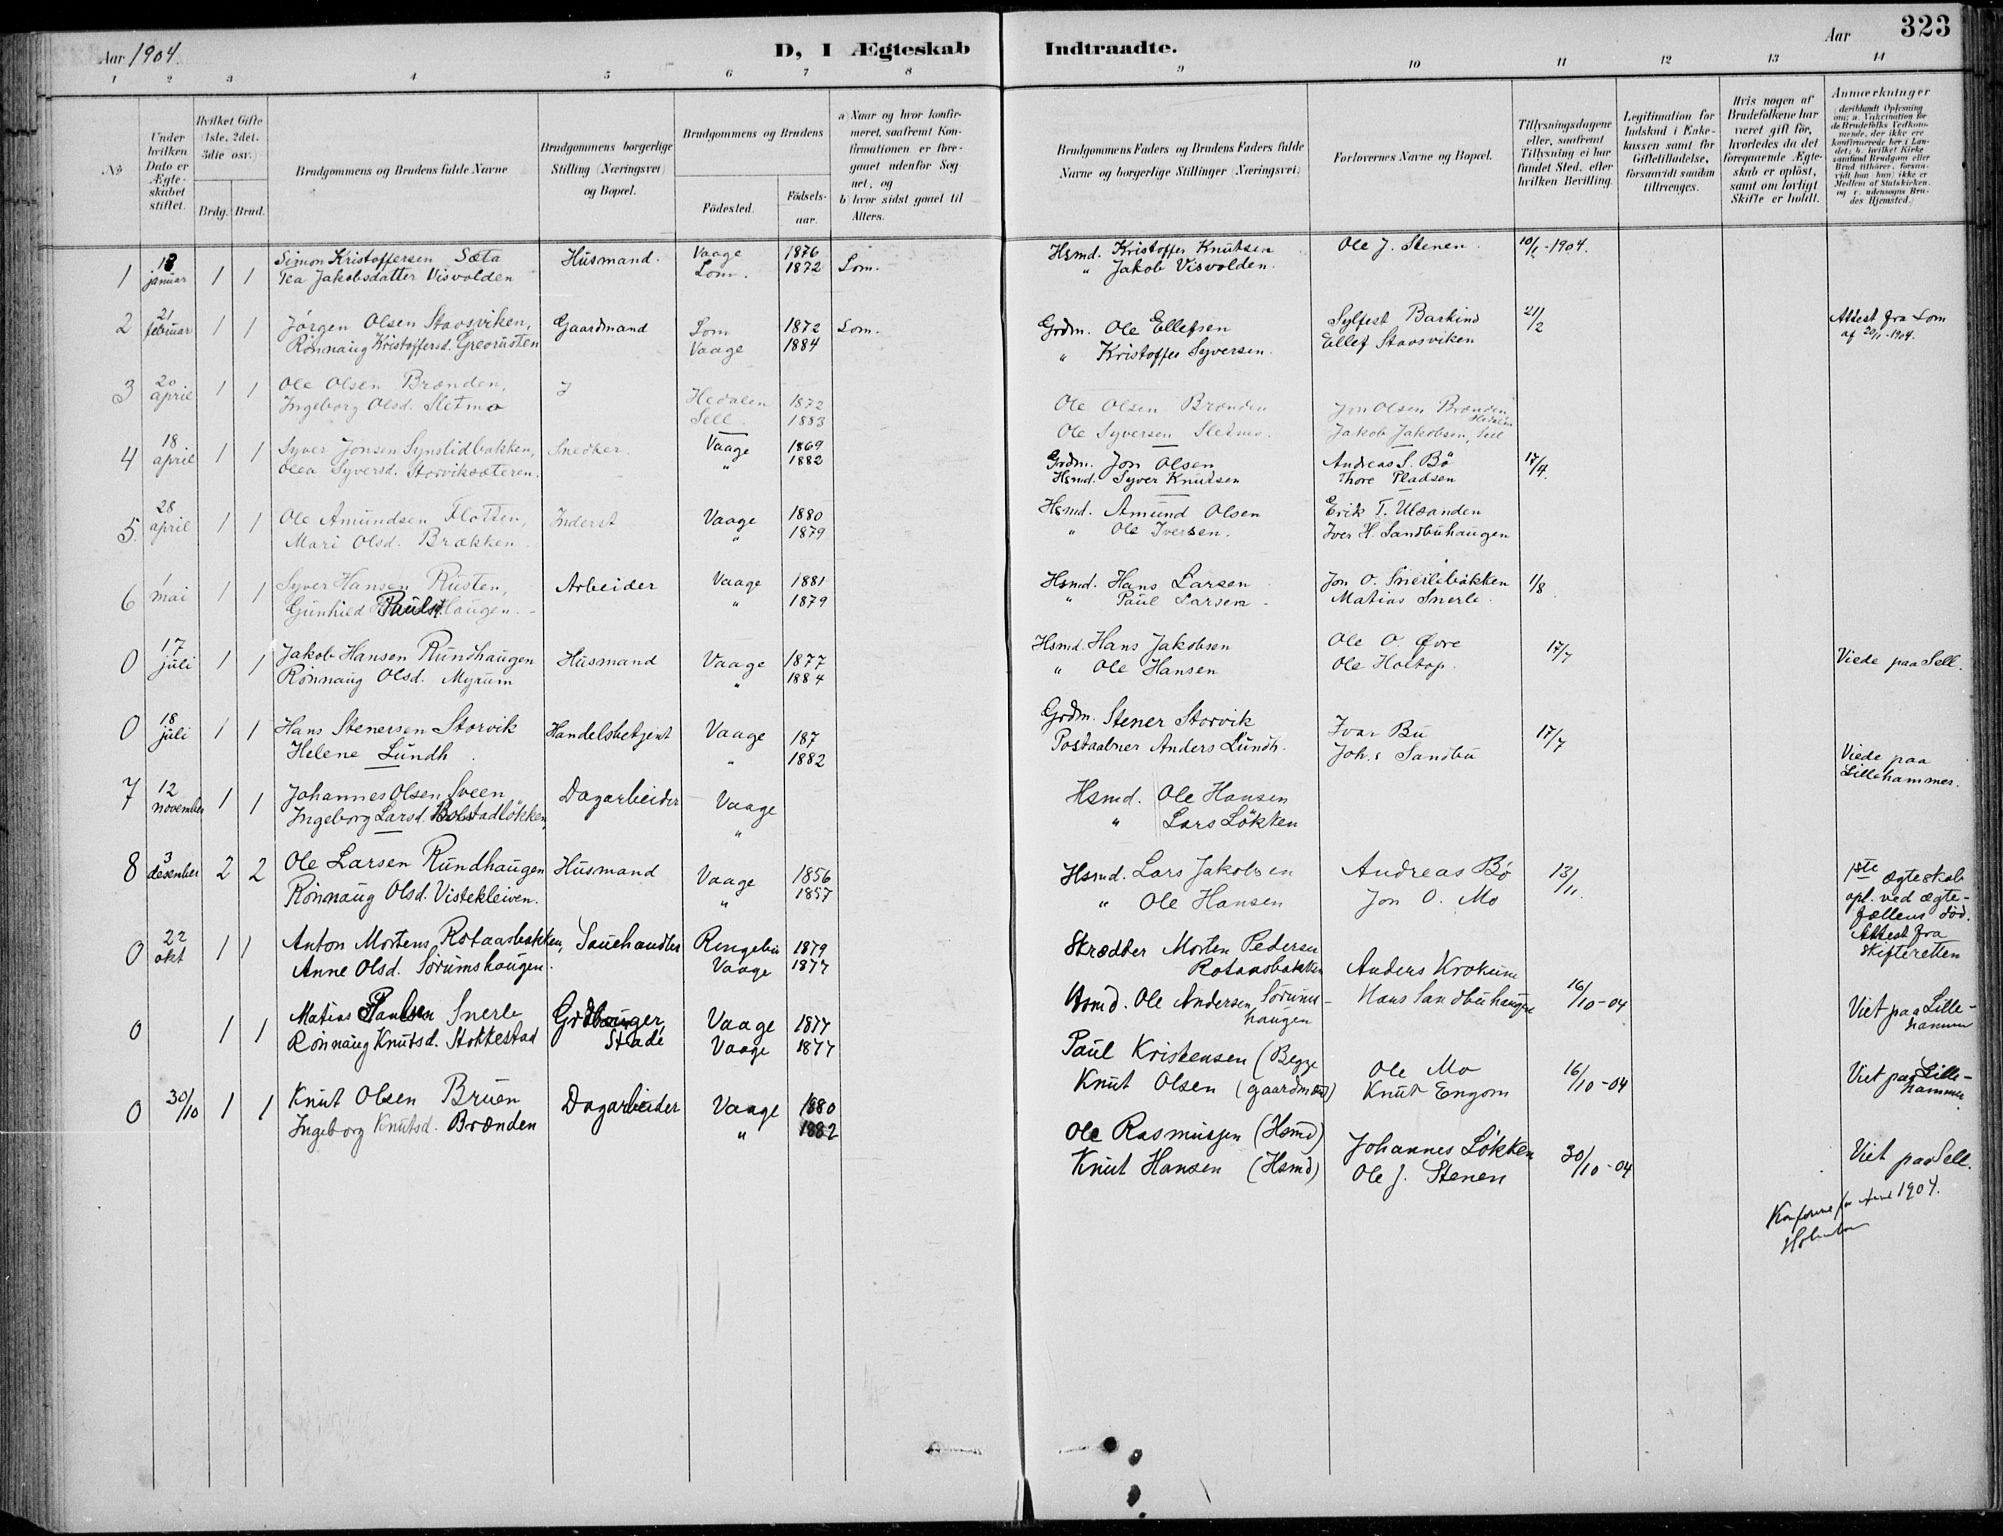 Aar 1904.
D, I Ægteskab Indtraadte.
Aar
323
1 2 3 4 5 6 7 8 9 10 11 12 13 14
No
Under hvilken Dato er Ægteskabet stiftet.
Hvilket Gifte (1ste, 2det, 3die osv.)
Brdg. Brud.
Brudgommens og Brudens fulde Navne
Brudgommens borgerlige Stilling (Næringsvei) og Bopæl.
Brudgommens og Brudens
Födested. Födsels-aar.
a) Naar og hvor konfirmeret, saafremt Konfirmationen er foregaaet udenfor Sognet, og
b) hvor sidst gaaet til Alters.
Brudgommens Faders og Brudens Faders fulde Navne og borgerlige Stillinger (Næringsvei)
Forlovernes Navne og Bopæl.
Tillysningsdagene eller, saafremt Tillysning ei har fundet Sted, efter hvilken Bevilling.
Legitimation for Indskud i Enkekassen samt for Giftetilladelse, forsaavidt saadan tiltrænges.
Hvis nogen af Brudefolkene har været gift för, hvorledes da det foregaaende Ægteskab er oplöst, samt om lovligt Skifte er holdt.
Anmærkninger
1 13 januar 1 1 Simon Kristoffersen Sæta Husmand. Vaage 1876 Hsmd. Kristoffer Knutsen Ole J. Stenen 10/1-1904.
Tea Jakobsdatter Visvolden Lom. 1872 Lom. " Jakob Visvolden.
2 21 februar 1 1 Jörgen Olsen Stavsviken, Gaardmand Lom 1872 Lom. Grdm. Ole Ellefsen Sylfest Barkind 21/2 Attest fra Lom
Rönnaug Kristoffersd. Vaage 1884 " Kristoffer Syversen. Ellef Stavsviken af 20/1-1904.
3 20 april 1 1 Ole Olsen Brænden, Hedalen 1872 Ole Olsen Brænden Jon Olsen Brænden, Hedalen
Ingeborg Olsd. Sletmo Sell 1883 Ole Syversen Sletmo. Jakob Jakobsen, Sell
4 18 april 1 1 Syver Jonsen Synslidbakken, Snedker. Vaage 1869 Grdm. Jon Olsen Andreas S. Bö 17/4.
Olea Syversd. Storviksæteren. " 1882 Hsmd. Syver Knudsen Thore Pladsen
5. 28 april 1 1 Ole Amundsen Flotten, Inderst Vaage 1880 Hsmd. Amund Olsen Erik T. Ulsanden
Mari Olsd. Brækken. " 1879 " Ole Iversen. Iver H. Sandbuhaugen
6 1 mai 1 1 Syver Hansen Rusten, Arbeider Vaage 1881 Hsmd. Hans Larsen Jon O. 1/8
Gunhild Paulsd. Haugen. " 1879 " Paul Larsen Matias Snerle.
0 17 juli 1 1 Jakob Hansen Rundhaugen Husmand Vaage 1877 Hsmd. Hans Jakobsen Ole O Övre 17/7 Viede paa Sell.
Rönnaug Olsd. Myrum " 1884 " Ole Hansen Ole Holtop.
0 18 juli 1 1 Hans Stenersen Storvik Handelsbetjent Vaage 187 Grdm. Stener Storvik Ivar Bu 17/7 Viede paa
Helene Lundh. " 1882 Postaabner Anders Lundh. Joh.s Sandbu Lillehammer.
7 12 november 1 1 Johannes Olsen Sveen Dagarbeider Vaage Hsmd. Ole Hansen
Ingeborg Larsd. Bolstadlökken, " " Lars Lökken
8 3 desember 2 2 Ole Larsen Rundhaugen Husmand Vaage 1856 Hsmd. Lars Jakobsen Andreas Bö 13/11. 1ste ægteskab
Rönnaug Olsd. Vistekleiven. " 1857 " Ole Hansen Jon O. Mo opl. ved ægte-
fællens död.
Attest fra
Skifteretten
0 22 okt 1 1 Anton Mortens. Rotaasbakken, Sauehandler Ringebu 1879 Skrædder Morten Pedersen Rotaasbakken Anders Krokum 16/10-04 Viet paa Lille-
Anne Olsd. Sörumshaugen. Vaage 1877 Hsmd. Ole Andersen Sörums-haugen Hans Sandbuhaugen hammer
0 1 1 Matias Paulsen Snerle Grdbruger, Vaage 1877 Paul Kristensen (Begge Ole Mo 16/10-04 Viet paa Lille-
Rönnaug Knutsd. Stokkestad Vaage 1877 Knut Olsen (gaardmænd) Knut Engom hammer
0 30/10 1 1 Knut Olsen Bruen Dagarbeider Vaage 1880 Ole Rasmussen (Hsmd) Johannes Lökken 30/10-04 Viet paa Sell.
Ingeborg Knutsd. Brænden " 1882 Knut Hansen (Hsmd) Ole J. Stenen
1904.